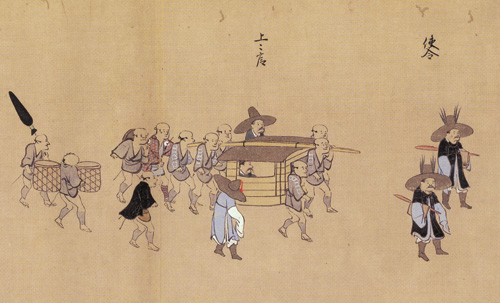 使令
上〻官